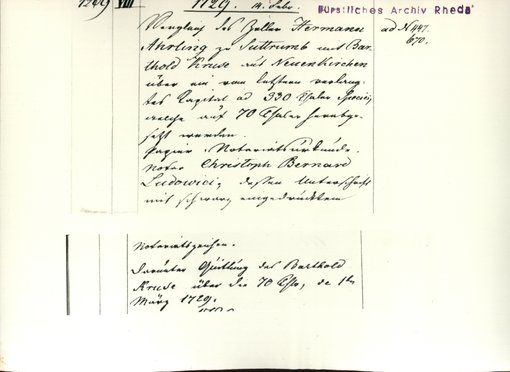 1249 VIII 1729. 4. Febr. Fürstliches Archiv Rheda
Vergleich des Zeller Hermann ad N 447.
Ahrling zu Suttrumb und Bar- 670.
thold Kruse aus Neuenkirchen
über ein von letztem verlang-
tes Kapital ad 330 Thaler
welche auf 70 Thaler herabge-
setzt wurden.
Papier. Notariatsurkunde.
Notar Christoph Bernard
Ludowici, dessen Unterschrift
mit schwarz eingedrücktem
Notariatszeichen.
Darunter Quittung des Barthold
Kruse über die 70 Thlr, de 1ten
März 1729.